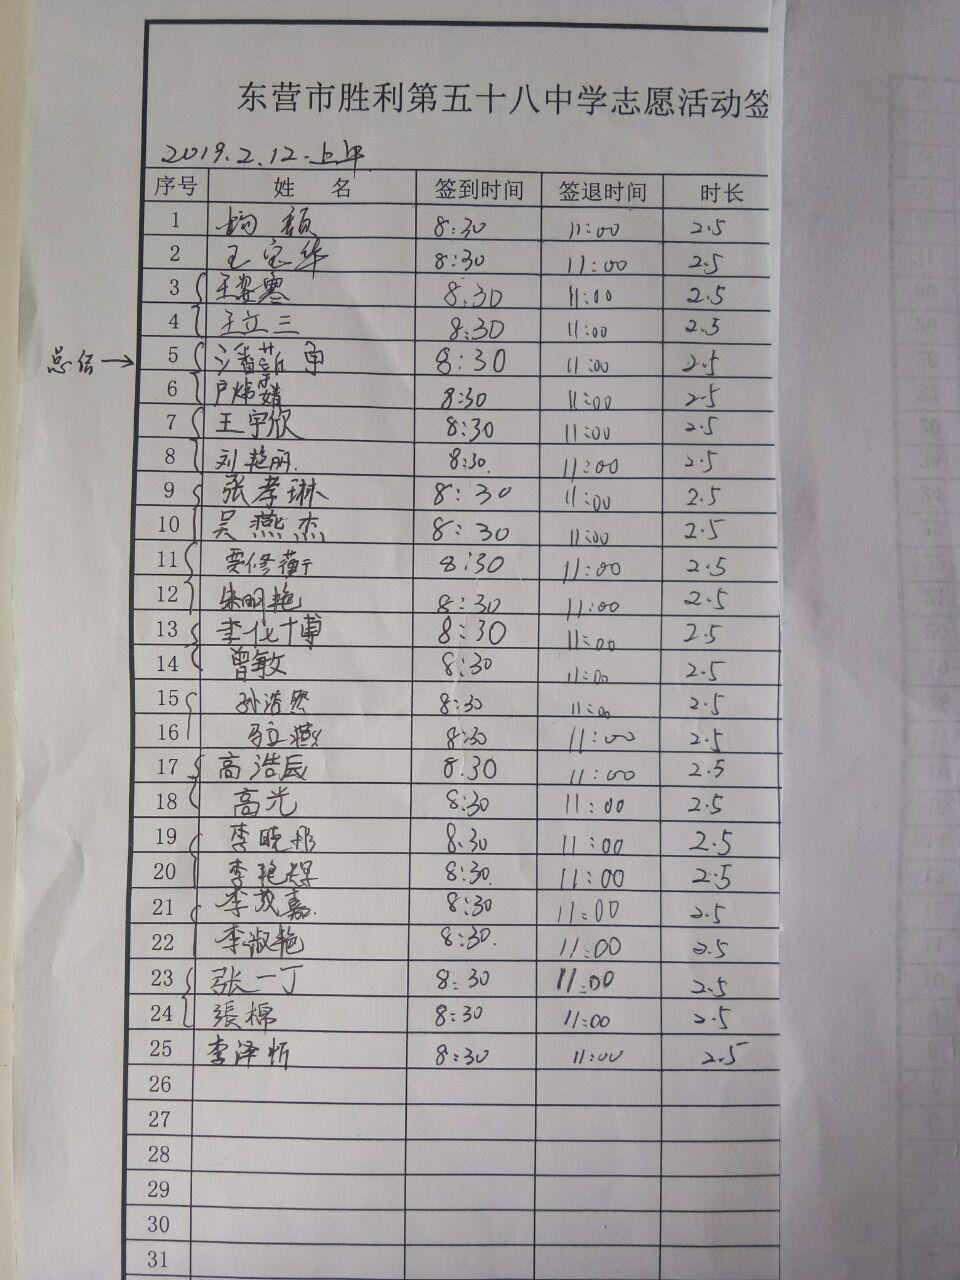 东营市胜利第五十八中学志愿活动签
2019.2.12.上午
序号 姓 名 签到时间 签退时间 时长
1 8:30 11:00 2.5
2 王宝华 8:30 11:00 2.5
3 王姿寒 8:30 11:00 2.5
4 王立三 8:30 11:00 2.5
总结→ 5 潘 8:30 11:00 2.5
6 婧 8:30 11:00 2.5
7 王宇欣 8:30 11:00 2.5
8 刘艳丽. 8:30. 11:00 2.5
9 张孝琳 8:30 11:00 2.5
10 吴燕杰 8:30 11:00 2.5
11 贾修蘅 8:30 11:00 2.5
12 朱明艳 8:30 11:00 2.5
13 李化博 8:30 11:00 2.5
14 曾敏 8:30 11:00 2.5
15 孙浩然 8:30 11:00 2.5
16 马立燕 8:30 11:00 2.5
17 高浩辰 8:30 11:00 2.5
18 高光 8:30 11:00 2.5
19 李晓彤 8:30 11:00 2.5
20 李艳 8:30. 11:00 2.5
21 李茂嘉. 8:30 11:00 2.5
22 李淑艳 8:30. 11:00 2.5
23 张一丁 8:30 11:00 2.5
24 張棉 8:30 11:00 2.5
25 李泽忻 8:30 11:00 2.5
26
27
28
29
30
31